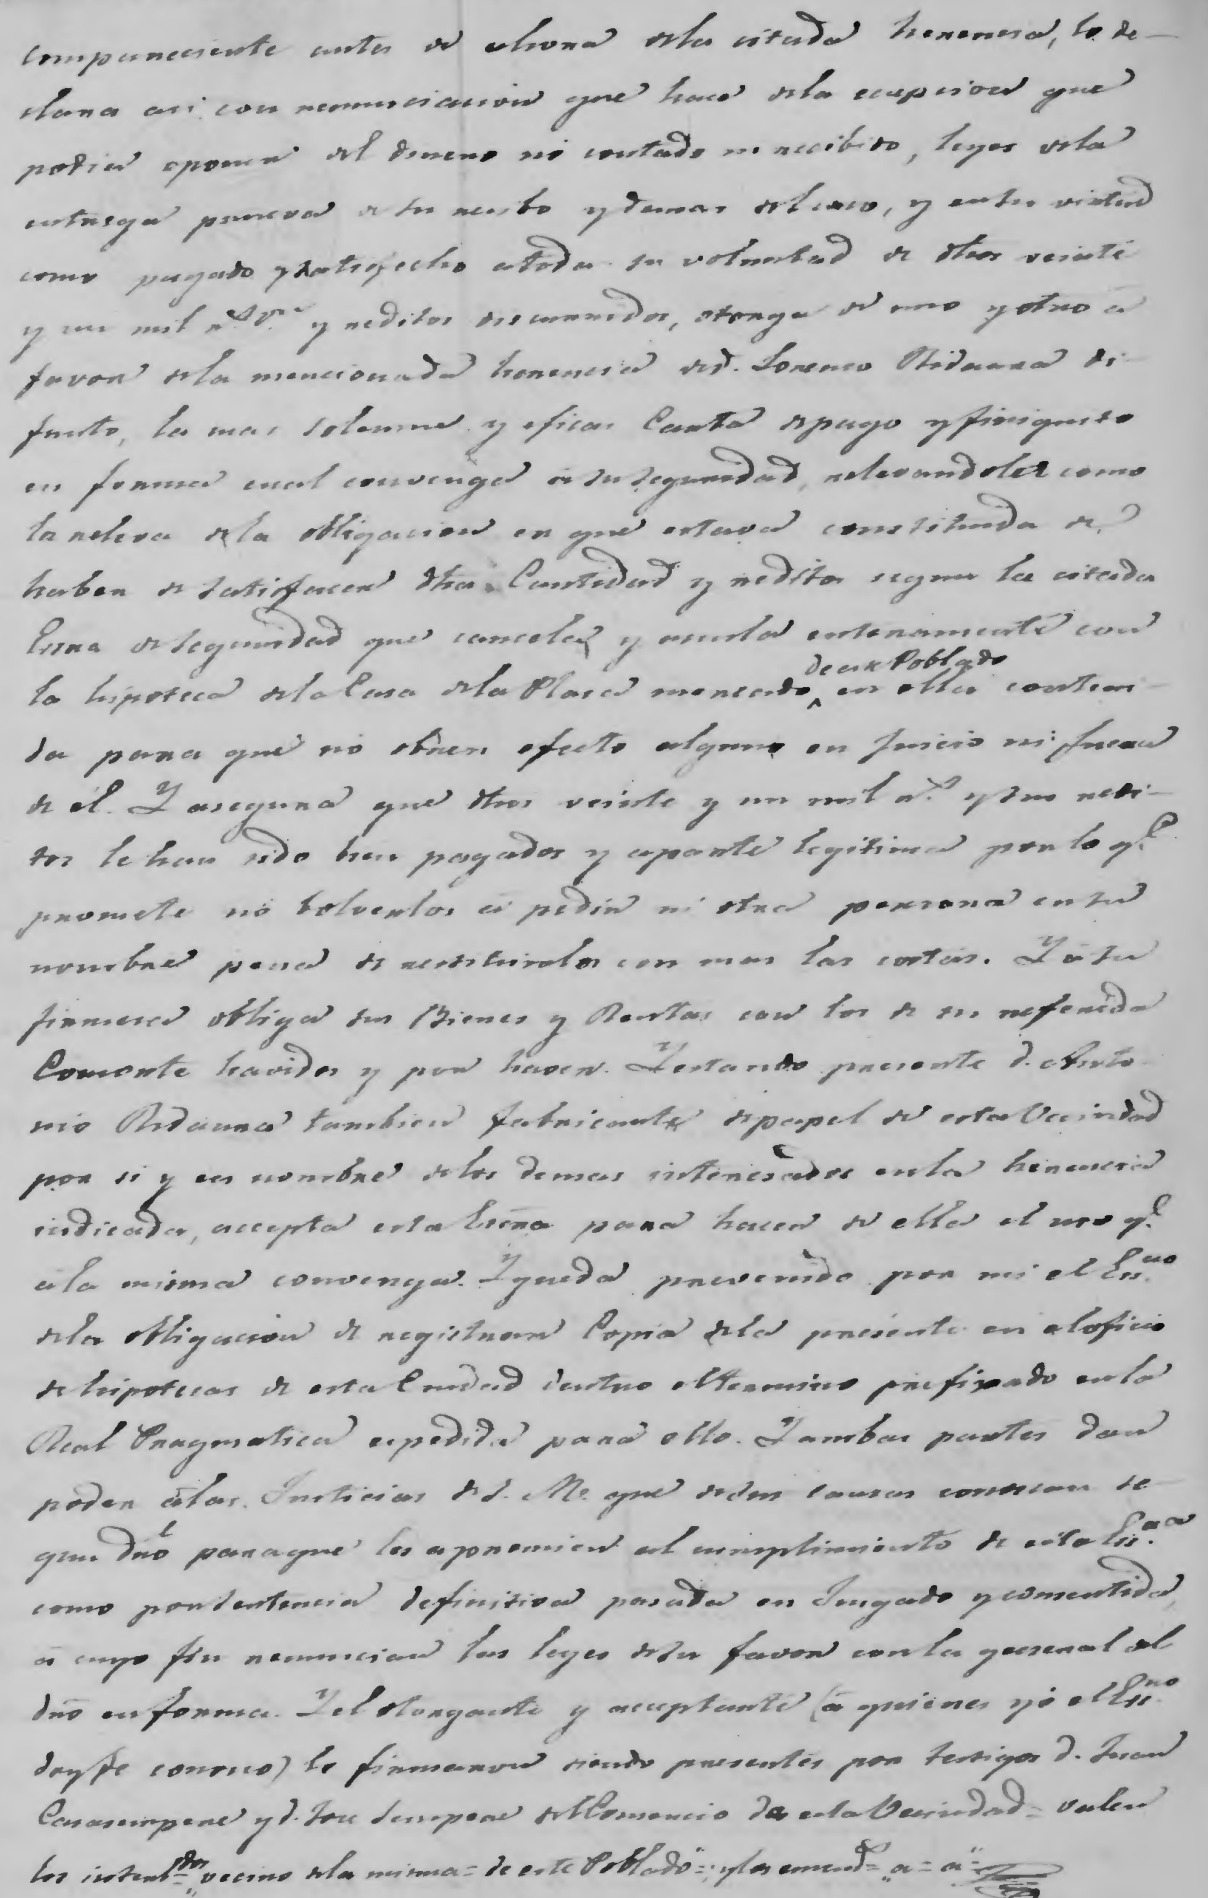 compareciente antes de ahora dela citada herencia, lo de-
clara asi con renunciacion que hace dela ecepcion que
podia oponer del dinero no contado ni recibido, leyes dela
entrega prueva de su recibo y demas del caso, y en su virtud
como pagado y satisfecho atoda su voluntad de dhos veinte
y un mil r.s v.n y reditos discurridos, otorga de uno y otro a
favor dela mencionada herencia de d. Lorenzo Ridaura di-
funto, la mas solemne y eficaz Carta de pago y finiquito
en forma cual convenga a su seguridad, relevandola como
la releva dela obligacion en que estava constituida de
haber de satisfacer dha Cantidad y reditos segun la citada
Esrra de seguridad que cancela y anula enteramente con
la hipoteca dela Casa dela Plaza mercado de este Poblado en ella conteni-
da para que no obren efecto alguno en Juicio ni fuera
de él. Y asegura que dhos veinte y un mil r.s y sus redi-
tos le han sido bien pagados y aparte legitima por lo q.e
promete no bolverlos á pedir ni otra persona en su
nombre pena de restituirlos con mas las costas. Y á su
firmeza obliga sus Bienes y Rentas con los de su referida
Consorte havidos y por haver. Y estando presente d. Anto-
nio Ridaura tambien fabricante de papel de esta Vecindad
por si y en nombre delos demas interesados en la herencia
indicada, accepta esta Escrra para hacer de ella el uso q.e
ala misma convenga. Y queda prevenido por mi el Es.no
dela obligacion de registrar Copia dela presente en el oficio
de hipotecas de esta Ciudad dentro el termino prefixado en la
Real Pragmatica expedida para ello. Y ambas partes dan
poder álas Justicias de S. M. que de sus causas conozcan se-
gun dro para que les apremien al cumplimiento de esta Es.ra
como por sentencia definitiva pasada en Juzgado y consentida,
á cuyo fin renuncian las leyes de su favor con la general del
dro en forma. Y el otorgante y acceptante (a quienes yo el Es.no
doy fe conozco) lo firmaron siendo presentes por testigos d. Juan
Carasempere y d. Jose Sempere del Comercio de esta Vecindad = valen
los interl.dos = vecino dela misma = de este Poblado = y los emend.s = a = a =